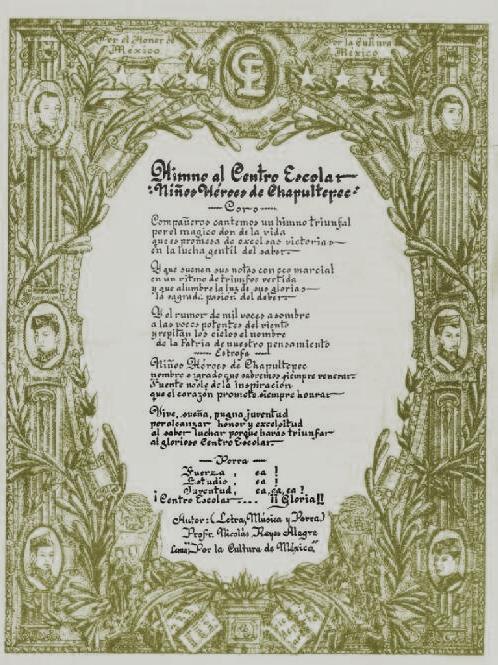 Por el Honor de
México
Por la Cultura
México
CE
Himno al Centro Escolar
"Niños Héroes de Chapultepec"
Coro
Compañeros cantemos un himno triunfal
por el magico don de la vida
que es promesa de excelsas victorias
en la lucha gentil del saber.
Y que suenen sus notas con eco marcial
en un ritmo de triunfos vertida
y que alumbre la luz de sus glorias
la sagrada pasión del deber.
Y el rumor de mil voces asombre
a las voces potentes del viento
y repitan los cielos el nombre
de la Patria de nuestro pensamiento
Estrofa
Niños Héroes de Chapultepec
nombre sagrado que sabremos siempre venerar
Fuente noble de la inspiración
que el corazón promete siempre honrar
Vive, sueña, pugna juventud
por alcanzar honor y excelsitud
al saber luchar porque harás triunfar
al glorioso Centro Escolar.
Porra
Fuerza, ea !
Estudio, ea !
Juventud, ea, ea, ea ?
¡Centro Escolar.... ¡¡Gloria!!
Autor: (Letra, Música y Porra)
Profr. Nicolás Reyes Alegre
Lema: "Por la Cultura de México"